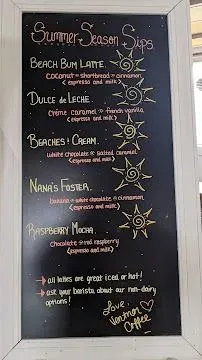 Summer Season Sips
Beach Bum Latte.
coconut + shortbread + cinnamon
(espresso and milk)
Dulce de Leche.
crème caramel + french vanilla
(espresso and milk)
Beaches & Cream.
white chocolate + salted caramel
(espresso and milk)
Nana's Foster.
banana + white chocolate + cinnamon
(espresso and milk)
Raspberry Mocha.
chocolate + red raspberry
(espresso and milk)
→ all lattes are great iced or hot!
→ ask your barista about our non-dairy
options!
Love,
Ventnor
Coffee